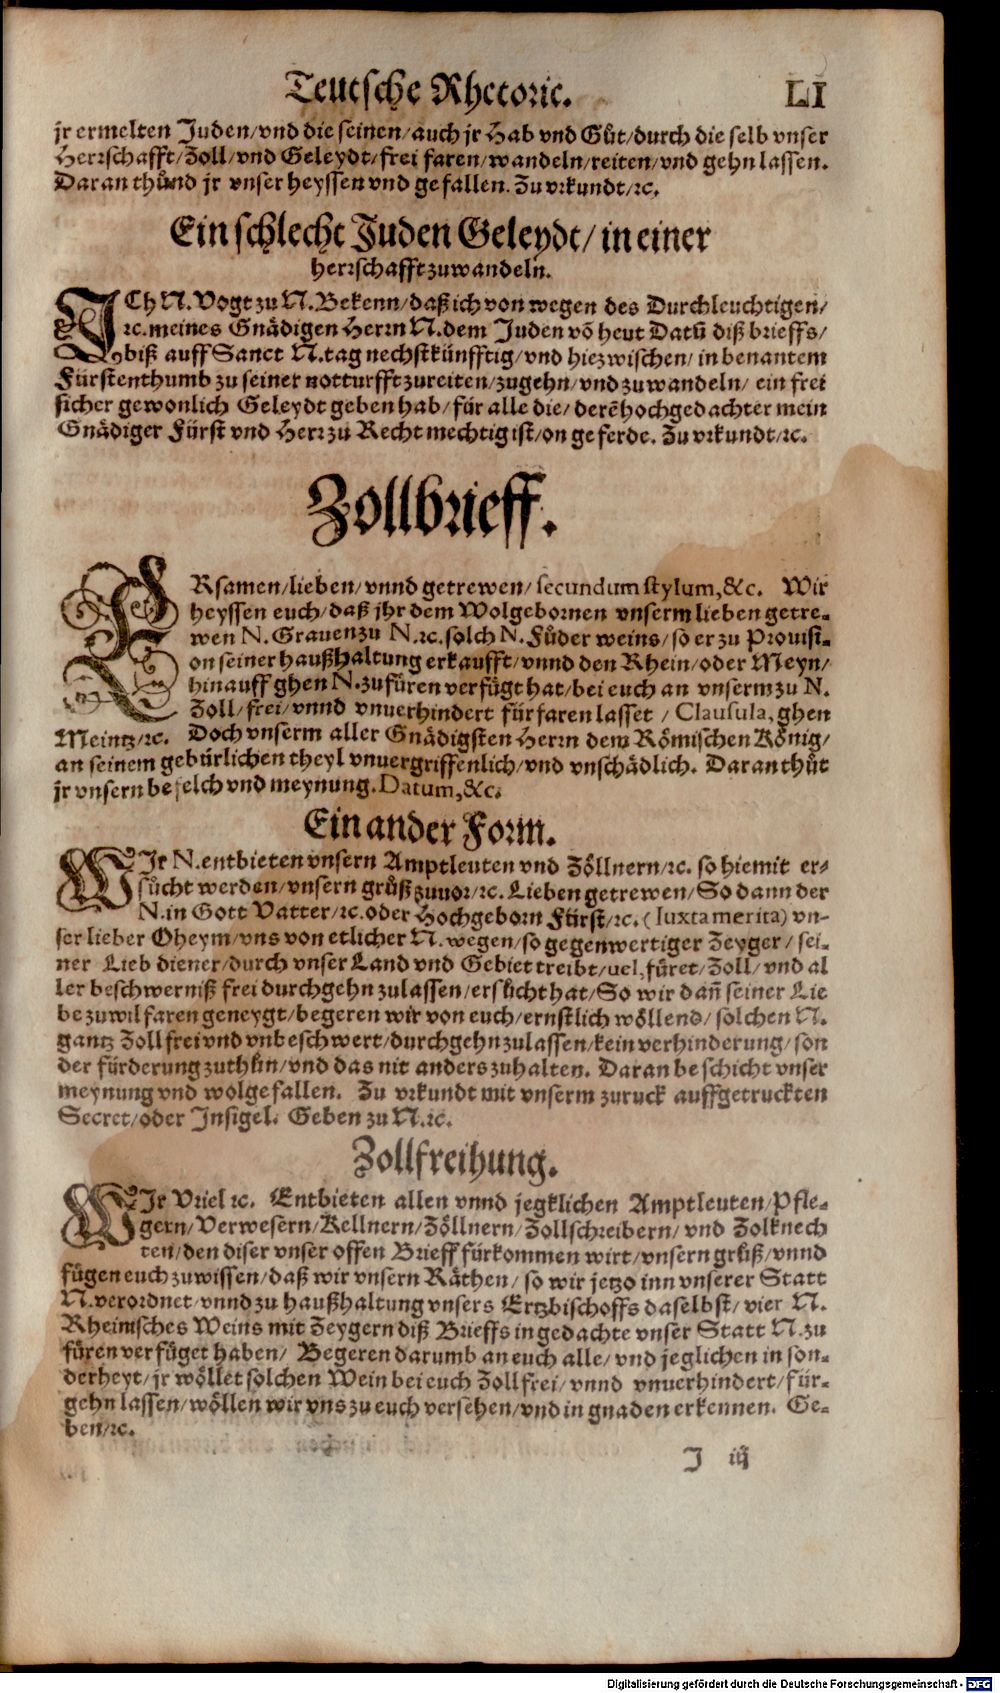 Teutsche Rhetoric. LI
jr ermelten Juden/vnd die seinen/auch jr Hab vnd Gůt/durch die selb vnser
Herrschafft/Zoll/vnd Geleydt/frei faren/wandeln/reiten/vnd gehn lassen.
Daran thůnd jr vnser heyssen vnd gefallen. Zu vrkundt/ꝛc.
Ein schlecht Juden Geleydt/in einer
herrschafft zuwandeln.
ICh N. Vogt zu N. Bekenn/daß ich von wegen des Durchleuchtigen/
ꝛc. meines Gnädigen Herrn N. dem Juden võ heut Datũ diß brieffs/
biß auff Sanct N. tag nechstkünfftig/vnd hiezwischen/in benantem
Fürstenthumb zu seiner notturfft zureiten/zugehn/vnd zuwandeln/ein frei
sicher gewonlich Geleydt geben hab/für alle die/derẽ hochgedachter mein
Gnädiger Fürst vnd Herr zu Recht mechtig ist/on geferde. Zu vrkundt/ꝛc.
Zollbrieff.
ERsamen/lieben/vnnd getrewen/secundum stylum, &c. Wir
heyssen euch/daß jhr dem Wolgebornen vnserm lieben getre-
wen N. Grauen zu N. ꝛc. solch N. Fůder weins/so er zu Prouisi-
on seiner haußhaltung erkaufft/vnnd den Rhein/oder Meyn/
hinauff ghen N. zufüren verfügt hat/bei euch an vnserm zu N.
Zoll/frei/vnnd vnuerhindert fürfaren lasset/Clausula, ghen
Meintz/ꝛc. Doch vnserm aller Gnädigsten Herrn dem Römischen König/
an seinem gebürlichen theyl vnuergriffenlich/vnd vnschädlich. Daran thůt
jr vnsern befelch vnd meynung. Datum, &c.
Ein ander Form.
WIr N. entbieten vnsern Amptleuten vnd Zöllnern/ꝛc. so hiemit er-
sůcht werden/vnsern grůß zuuor/ꝛc. Lieben getrewen/So dann der
N. in Gott Vatter/ꝛc. oder Hochgeborn Fürst/ꝛc. (Iuxta merita) vn-
ser lieber Oheym/vns von etlicher N. wegen/so gegenwertiger Zeyger/sei-
ner Lieb diener/durch vnser Land vnd Gebiet treibt/uel, füret/Zoll/vnd al
ler beschwerniß frei durchgehn zulassen/ersůcht hat/So wir dañ seiner Lie
be zuwilfaren geneygt/begeren wir von euch/ernstlich wöllend/solchen N.
gantz Zollfrei vnd vnbeschwert/durchgehn zulassen/kein verhinderung/son
der fürderung zuthůn/vnd das nit anders zuhalten. Daran beschicht vnser
meynung vnd wolgefallen. Zu vrkundt mit vnserm zuruck auffgetruckten
Secret/oder Insigel. Geben zu N. ꝛc.
Zollfreihung.
WIr Vriel ꝛc. Entbieten allen vnnd jegklichen Amptleuten/Pfle-
gern/Verwesern/Kellnern/Zöllnern/Zollschreibern/vnd Zolknech
ten/den diser vnser offen Brieff fürkommen wirt/vnsern grůß/vnnd
fügen euch zuwissen/daß wir vnsern Räthen/so wir jetzo inn vnserer Statt
N. verordnet/vnnd zu haußhaltung vnsers Ertzbischoffs daselbst/vier N.
Rheinisches Weins mit Zeygern diß Brieffs in gedachte vnser Statt N. zu
füren verfüget haben/Begeren darumb an euch alle/vnd jeglichen in son-
derheyt/jr wöllet solchen Wein bei euch Zollfrei/vnnd vnuerhindert/für-
gehn lassen/wöllen wir vns zu euch versehen/vnd in gnaden erkennen. Ge-
ben/ꝛc.
J iij
Digitalisierung gefördert durch die Deutsche Forschungsgemeinschaft - DFG